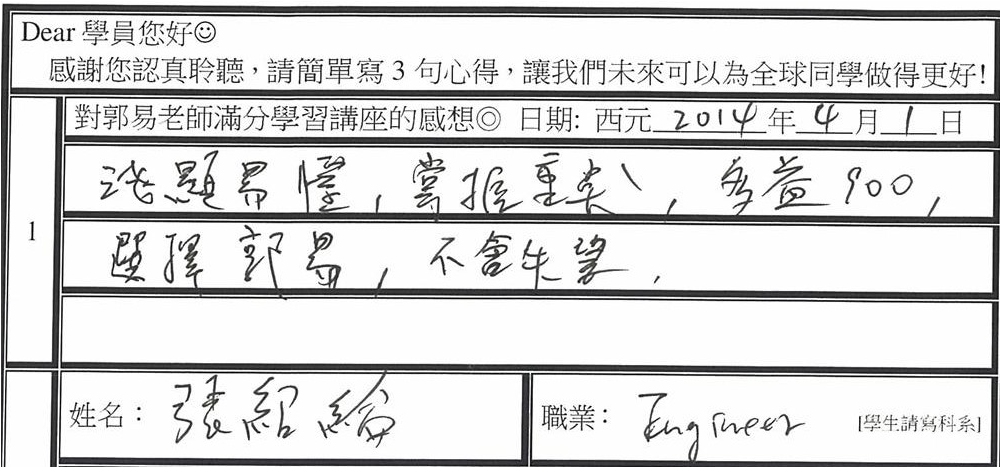 Dear 學員您好☺
感謝您認真聆聽，請簡單寫 3 句心得，讓我們未來可以為全球同學做得更好!
1
對郭易老師滿分學習講座的感想◎ 日期: 西元 2014 年 4 月 1 日
淺顯易懂，掌握重點，多益900，
選擇郭易，不會失望．
姓名： 張紹綸
職業： Engineer [學生請寫科系]